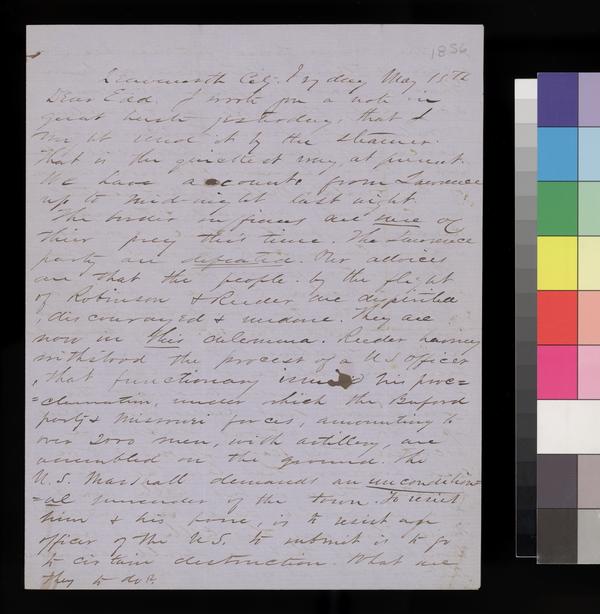 1856
Leavenworth City. Friday May 15th
Dear Edd. I wrote you a note in
great haste yesterday, that I
might send it by the steamer.
That is the quickest way, at present.
We have accounts from Lawrence
up to mid-night last night.
The border ruffians are sure of
thier prey this time. The Lawrence
party are defeated. Our advices
are that the people by the flight
of Robinson & Reeder are dispirited
, discouraged & undone. They are
now in this dilemma. Reeder having
withstood the process of a U S officer
, that functionary issued his proc=
=clamation, under which the Buford
party & Missouri forces, amounting to
over 2000 men, with artillery, are
assembled on the ground. The
U.S. Marshall demands an uncondition=
=al surrender of the town. To resist
him & his posse, is to resist an
officer of the U.S. to submit is to go
to certain destruction. What are
they to do?